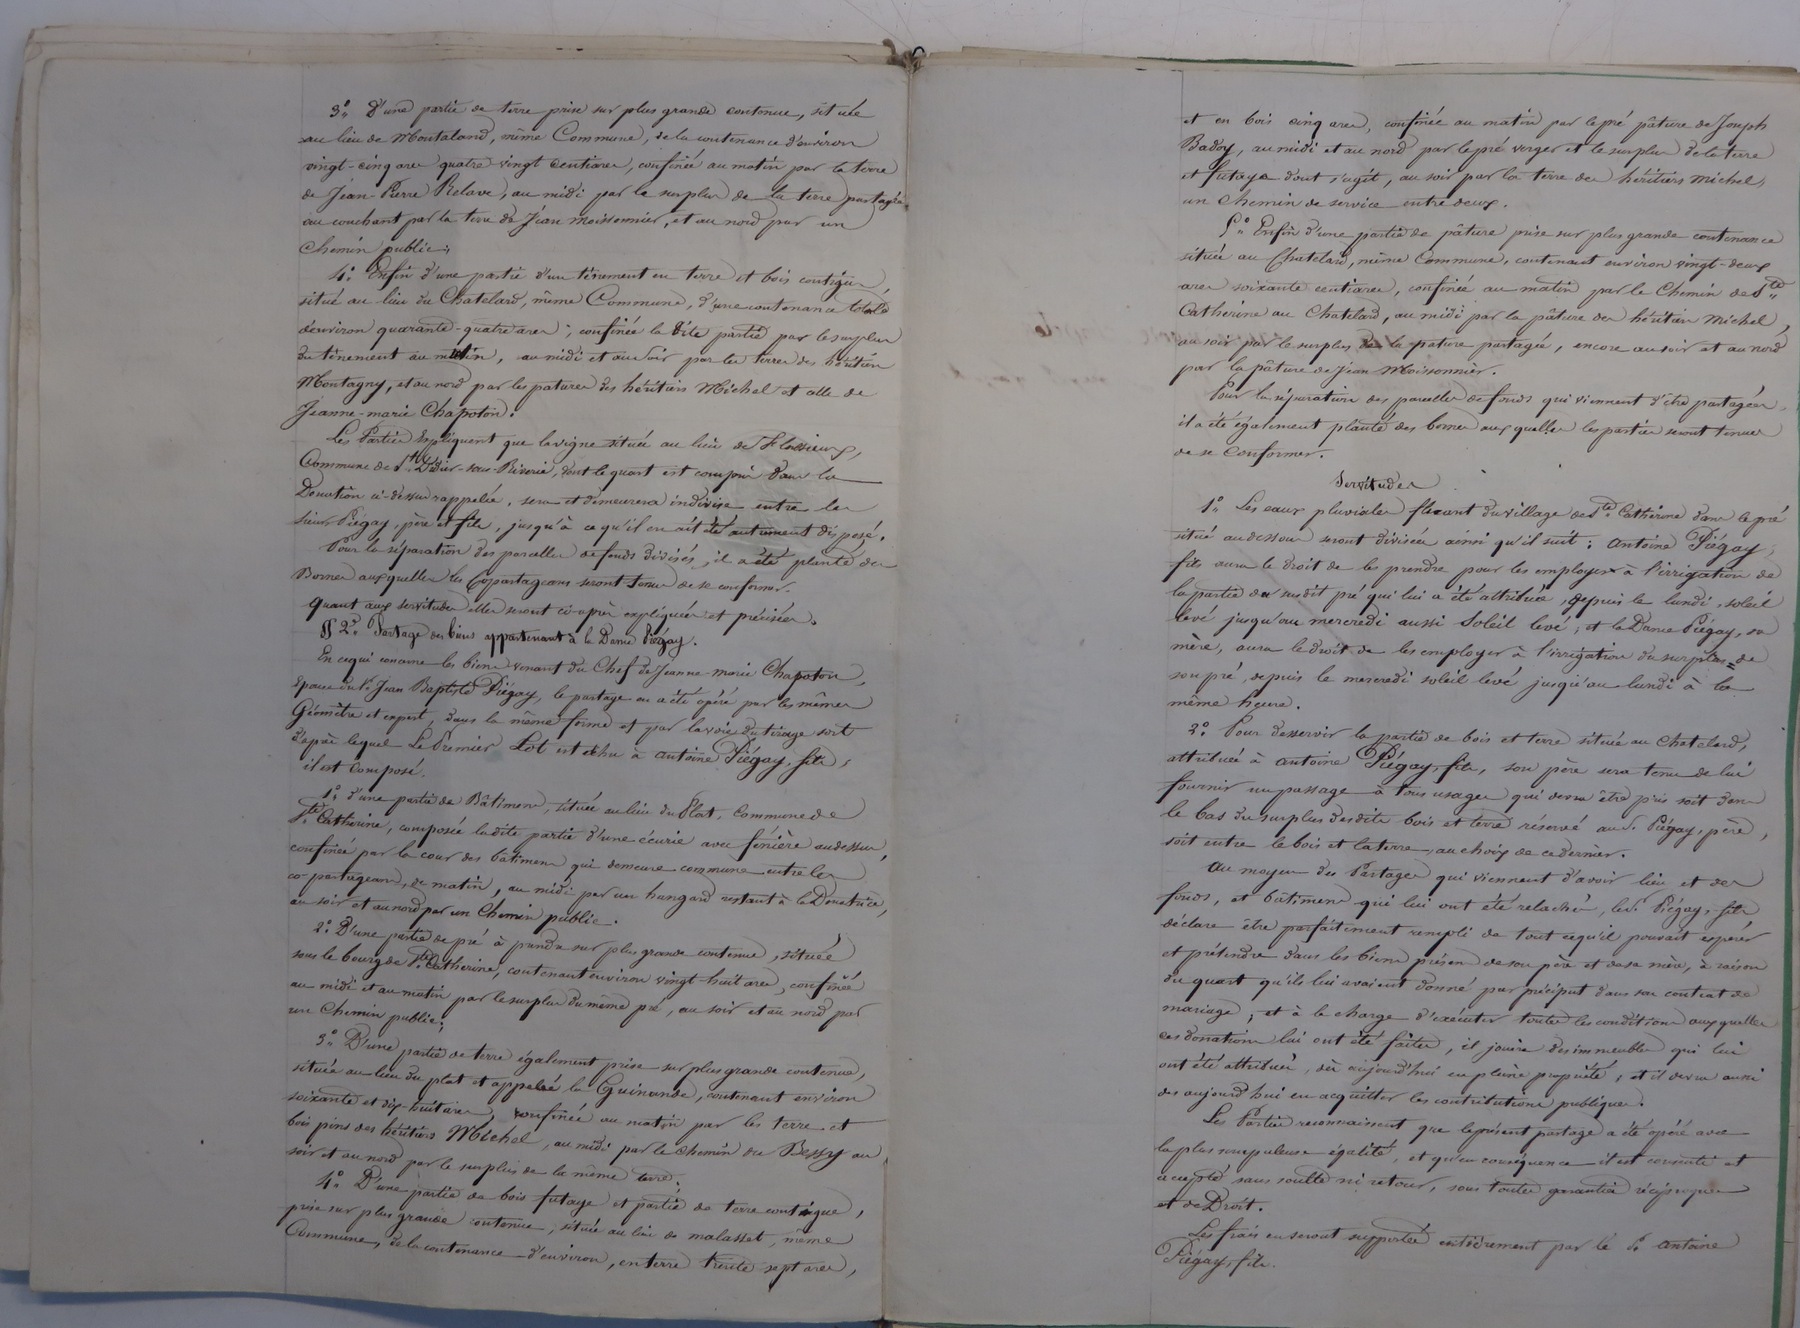 3.° D'une partie de terre prise sur plus grande contenue, située
au lieu de Montaland, même Commune, de la contenance d'environ
vingt-cinq ares quatre-vingt centiares, confinée au matin par la terre
de Jean-Pierre Relave, au midi par le surplus de la terre partagée
au couchant par la terre de Jean Moissonnier, et au nord par un
chemin public;
4.° Enfin d'une partie d'un tènement en terre et bois contigus,
situé au lieu du Chatelard, même Commune, d'une contenance totale
d'environ quarante-quatre ares; confinée la dite partie par le surplus
du tènement au matin, au midi et au soir par les terres des héritiers
Montagny, et au nord par les patures des héritiers Michel et celle de
Jeanne-marie Chapoton.
Les Parties expliquent que la vigne située au lieu de Flassieux,
Commune de St. Didier-sous-Riverie, dont le quart est compris dans la
Donation ci-dessus rappelée, sera et demeurera indivise entre les
sieurs Piégay, père et fils, jusqu'à ce qu'il en ait été autrement disposé.
Pour la séparation des parcelles de fonds divisés, il a été planté des
Bornes auxquelles les copartageans seront tenus de se conformer.
Quant aux servitudes elles seront ci-après expliquées et précisées.
§§ 2.° Partage des biens appartenant à la Dame Piégay.
En ce qui concerne les biens venant du Chef de Jeanne-marie Chapoton,
Epouse du Sr. Jean Baptiste Piégay, le partage en a été opéré par les mêmes
Géomètre et expert, dans la même forme et par la voie du tirage au sort
d'après lequel Le Premier Lot est échu à Antoine Piégay, fils;
il est composé.
1.° d'une partie de Bâtimens, située au lieu du Plat, Commune de
Ste. Catherine, composée la dite partie d'une écurie avec fénière au dessus,
confinée par la cour des bâtimens qui demeure commune entre les
co-partageans, de matin, au midi par un hangard restant à la Donatrice,
au soir et au nord par un Chemin public.
2.° D'une partie de pré à prendre sur plus grande contenue, située
sous le bourg de Ste. Catherine, contenant environ vingt-huit ares, confinée
au midi et au matin par le surplus du même pré, au soir et au nord par
un Chemin public;
3.° D'une partie de terre également prise sur plus grande contenue,
située au lieu du plat et appelée la Guinande, contenant environ
soixante et dix-huit ares, confinée au matin par les terre et
bois pins des héritiers Michel, au midi par le chemin du Bessy au
soir et au nord par le surplus de la même terre.
4.° D'une partie de bois futaye et partie de terre contigue,
prise sur plus grande contenue, située au lieu de malasset, même
Commune, de la contenance d'environ, en terre trente sept ares,
et en bois cinq ares, confinée au matin par le pré pâture de Joseph
Badoy, au midi et au nord par le pré verger et le surplus de la terre
et futaye dont s'agit, au soir par la terre des héritiers Michel,
un chemin de service entre deux.
5.° Enfin d'une partie de pâture prise sur plus grande contenance
située au Chatelard, même Commune, contenant environ vingt-deux
ares soixante centiares, confinée au matin par le Chemin de Ste.
Catherine au Chatelard, au midi par la pâture des héritiers Michel,
au soir par le surplus de la pature partagée, encore au soir et au nord
par la pâture de Jean Moissonnier.
Pour la séparation des parcelles de fonds qui viennent d'être partagées,
il a été également planté des bornes aux quelles les parties seront tenues
de se conformer.
Servitudes
1.° Les eaux pluviales fluant du village de Ste. Catherine dans le pré
situé au dessous seront divisées ainsi qu'il suit: Antoine Piégay,
fils aura le droit de les prendre pour les employer à l'irrigation de
la partie du susdit pré qui lui a été attribuée, depuis le lundi, soleil
levé jusqu'au mercredi aussi Soleil levé; et la Dame Piégay, sa
mère, aura le droit de les employer à l'irrigation du surplus de
son pré, depuis le mercredi soleil levé jusqu'au lundi à la
même heure.
2.° Pour desservir la partie de bois et terre située au Chatelard,
attribuée à Antoine Piégay, fils, son père sera tenu de lui
fournir un passage à tous usages qui devra être pris soit dans
le bas du surplus desdits bois et terre réservé au Sr. Piégay, père,
soit entre le bois et la terre, au choix de ce dernier.
Au moyen des Partages qui viennent d'avoir lieu et des
fonds, et bâtimens qui lui ont été relachés, le Sr. Piégay, fils
déclare être parfaitement rempli de tout ce qu'il pouvait espérer
et prétendre dans les biens présens de son père et de sa mère, à raison
du quart qu'ils lui avaient donné par préciput dans son contrat de
mariage; et à la charge d'exécuter toutes les conditions auxquelles
ces donations lui ont été faites, il jouira des immeubles qui lui
ont été attribués, dès aujourd'hui en pleine propriété; et il devra aussi
dès aujourd'hui en acquitter les contributions publiques.
Les Parties reconnaissent que le présent partage a été opéré avec
la plus scrupuleuse égalité, et qu'en conséquence il est consenti et
accepté sans soulte ni retour, sous toutes garanties réciproques
et de Droit.
Les frais en seront supportés entièrement par le Sr. Antoine
Piégay, fils.